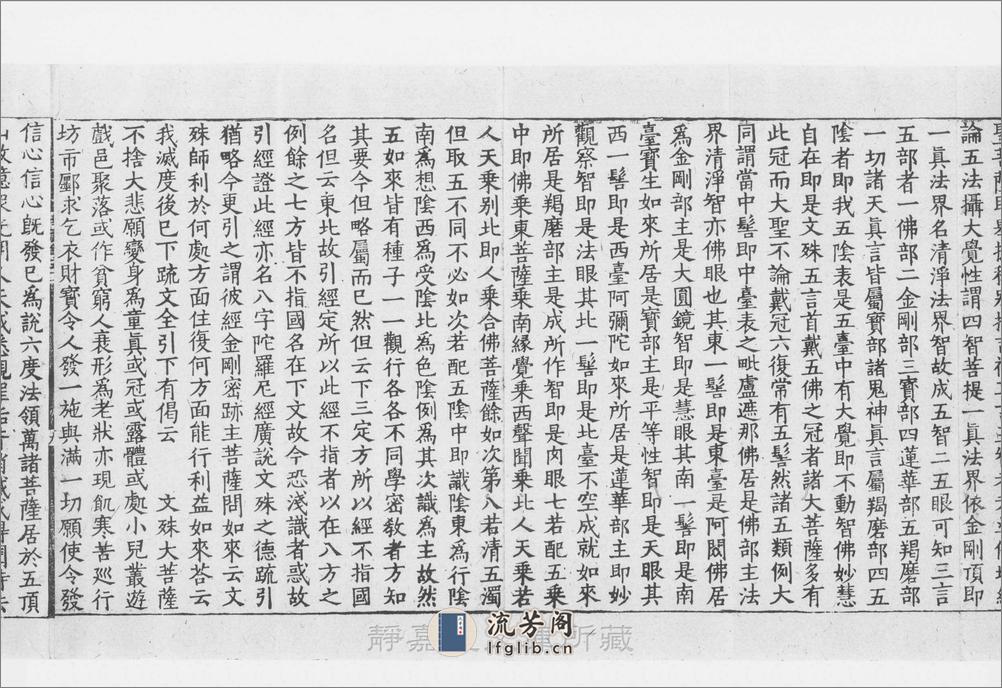 論五法攝大覺性謂四智菩提一眞法界依金剛頂即
一眞法界名清淨法界智故成五智二五眼可知三言
五部者一佛部二金剛部三寶部四蓮華部五羯磨部
一切諸天眞言皆屬寶部諸鬼神眞言屬羯磨部四五
陰者即我五陰表是五臺中有大覺即不動智佛妙慧
自在即是文殊五言首戴五佛之冠者諸大菩薩多有
此冠而大聖不論戴冠六復常有五髻然諸五類例大
同謂當中髻即中臺表之毗盧遮那佛居是佛部主法
界清淨智亦佛眼也其東一髻即是東臺是阿閦佛居
爲金剛部主是大圓鏡智即是慧眼其南一髻即是南
臺寶生如來所居是寶部主是平等性智即是天眼其
西一髻即是西臺阿彌陀如來所居是蓮華部主即妙
觀察智即是法眼其北一髻即是北臺不空成就如來
所居是羯磨部主是成所作智即是肉眼七若配五乘
中即佛乘東菩薩乘南緣覺乘西聲聞乘北人天乘若
人天乘別北即人乘合佛菩薩餘如次第八若清五濁
但取五不同不必如次若配五陰中即識陰東爲行陰
南爲想陰西爲受陰北爲色陰例爲其次識爲主故然
五如來皆有種子一一觀行各各不同學密教者方知
其要今但略屬而已然但云下三定方所以經不指國
名但云東北故引經定所以此經不指者以在八方之
例餘之七方皆不指國名在下文故今恐淺識者惑故
引經證此經亦名八字陀羅尼經廣說文殊之德疏引
猶略今更引之謂彼經金剛密跡主菩薩問如來云文
殊師利於何處方面住復何方面能行利益如來荅云
我滅度後已下疏文全引下有偈云　文殊大菩薩
不捨大悲願變身爲童眞或冠或露體或處小兒叢遊
戲邑聚落或作貧窮人衰形爲老狀亦現飢寒苦巡行
坊市鄽求乞衣財寶令人發一施與滿一切願使令發
信心信心旣發已爲說六度法領萬諸菩薩居於五頂
靜嘉
所藏
流芳阁
lfglib.cn